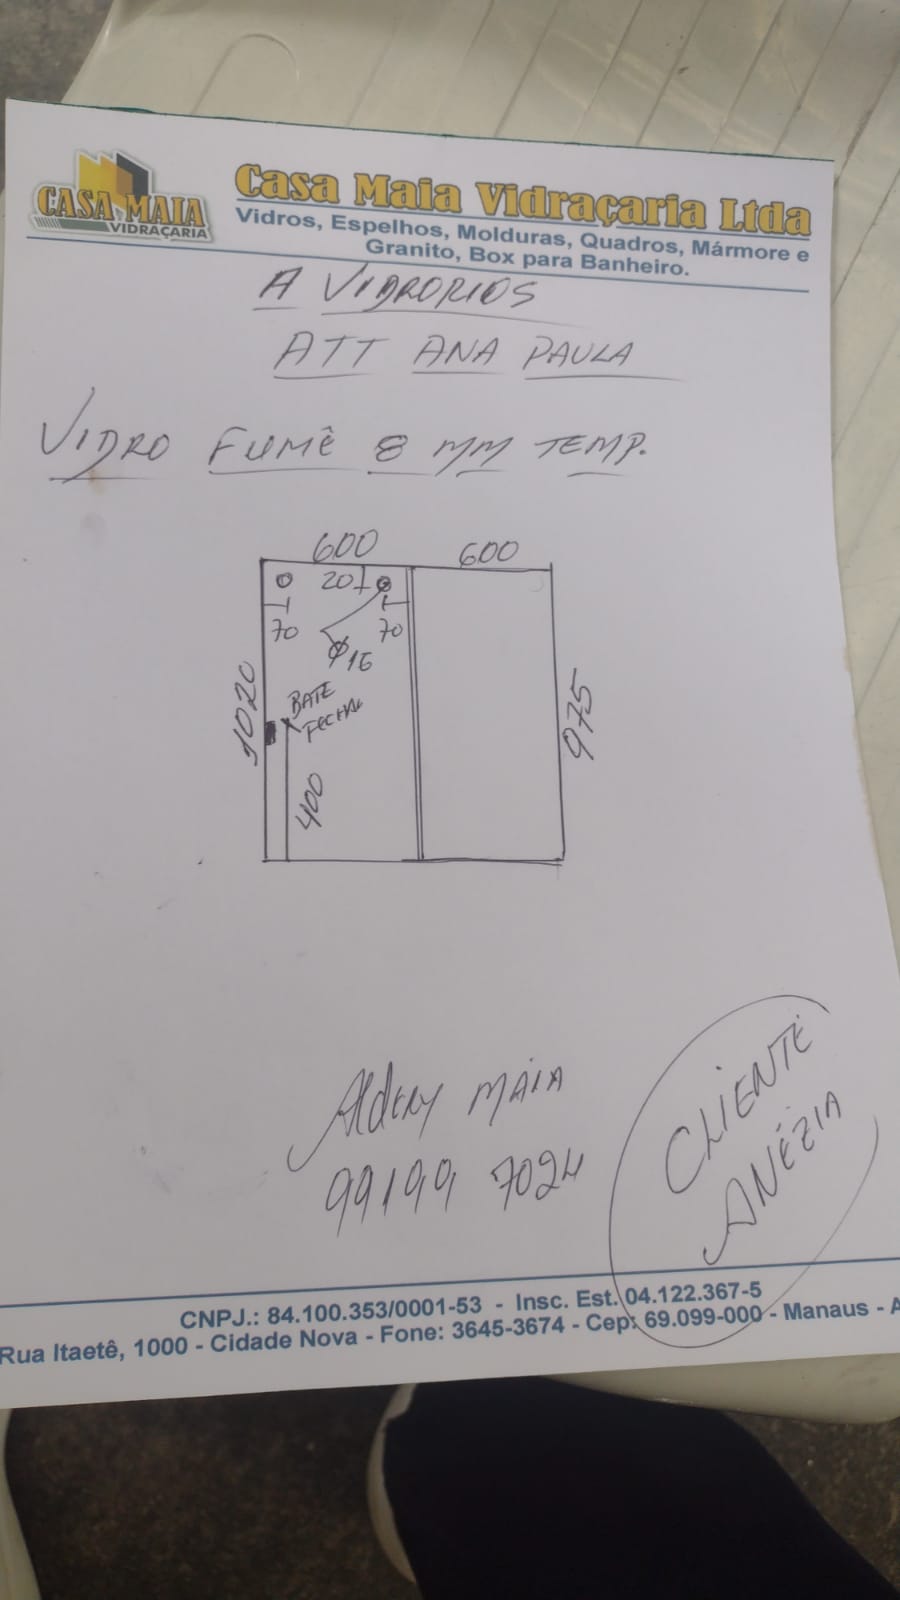 CASA MAIA
VIDRAÇARIA
Casa Maia Vidraçaria Ltda
Vidros, Espelhos, Molduras, Quadros, Mármore e
Granito, Box para Banheiro.
A VIDRORIOS
ATT ANA PAULA
VIDRO FUMÊ 8 MM TEMP.
600 600
20
70 70
Ø16
1020
BATE
FECHA
975
400
Aldery MAIA
99199 7024
CLIENTE
ANÉZIA
CNPJ.: 84.100.353/0001-53 - Insc. Est. 04.122.367-5
Rua Itaetê, 1000 - Cidade Nova - Fone: 3645-3674 - Cep: 69.099-000 - Manaus - A